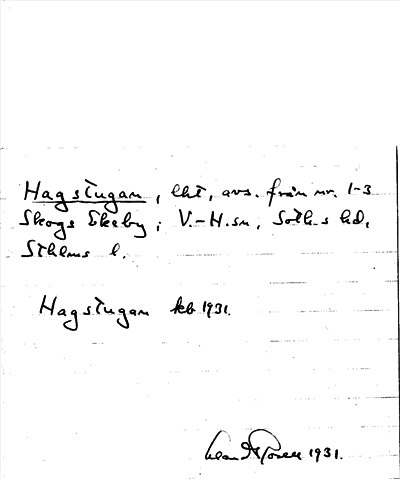 Hagstugan, lht, avs. från nr. 1-3
Skogs Ekeby, V.-H. sn, Soth-s hd,
Sthlms l.
Hagstugan kb 1931.
1931.